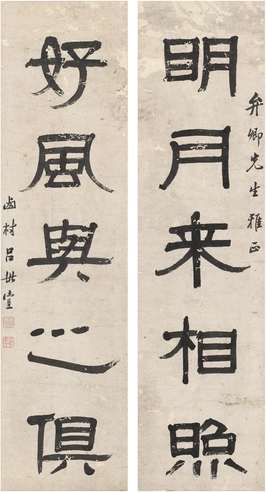 弁卿先生雅正
明月来相照
好風與之俱
卤村吕世宜